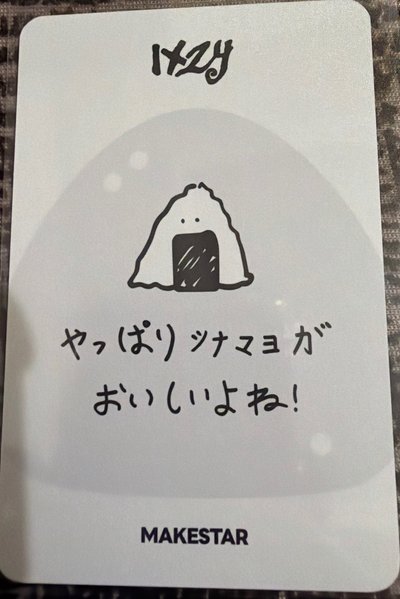 ITZY
やっぱりツナマヨが
おいしいよね!
MAKESTAR